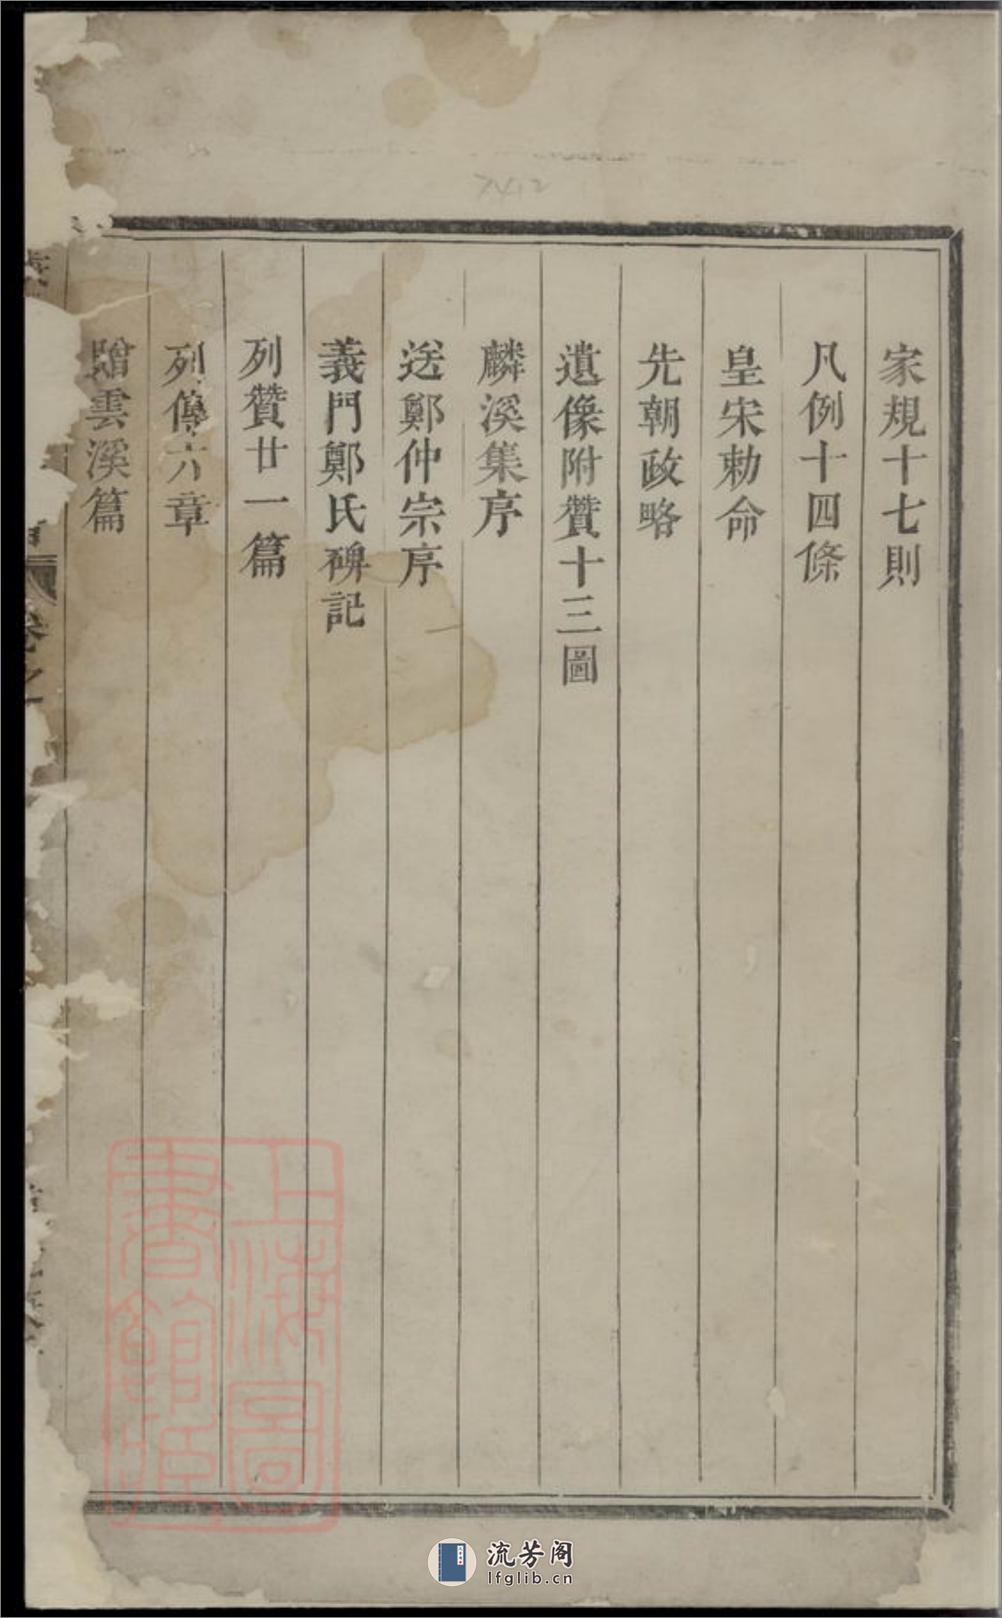 家規十七則
凡例十四條
皇宋勅命
先朝政略
遺像附贊十三圖
麟溪集序
送鄭仲宗序
義門鄭氏碑記
列贊廿一篇
列傳六章
贈雲溪篇
卷之
上海圖
書館藏
7412
流芳阁
lfglib.cn